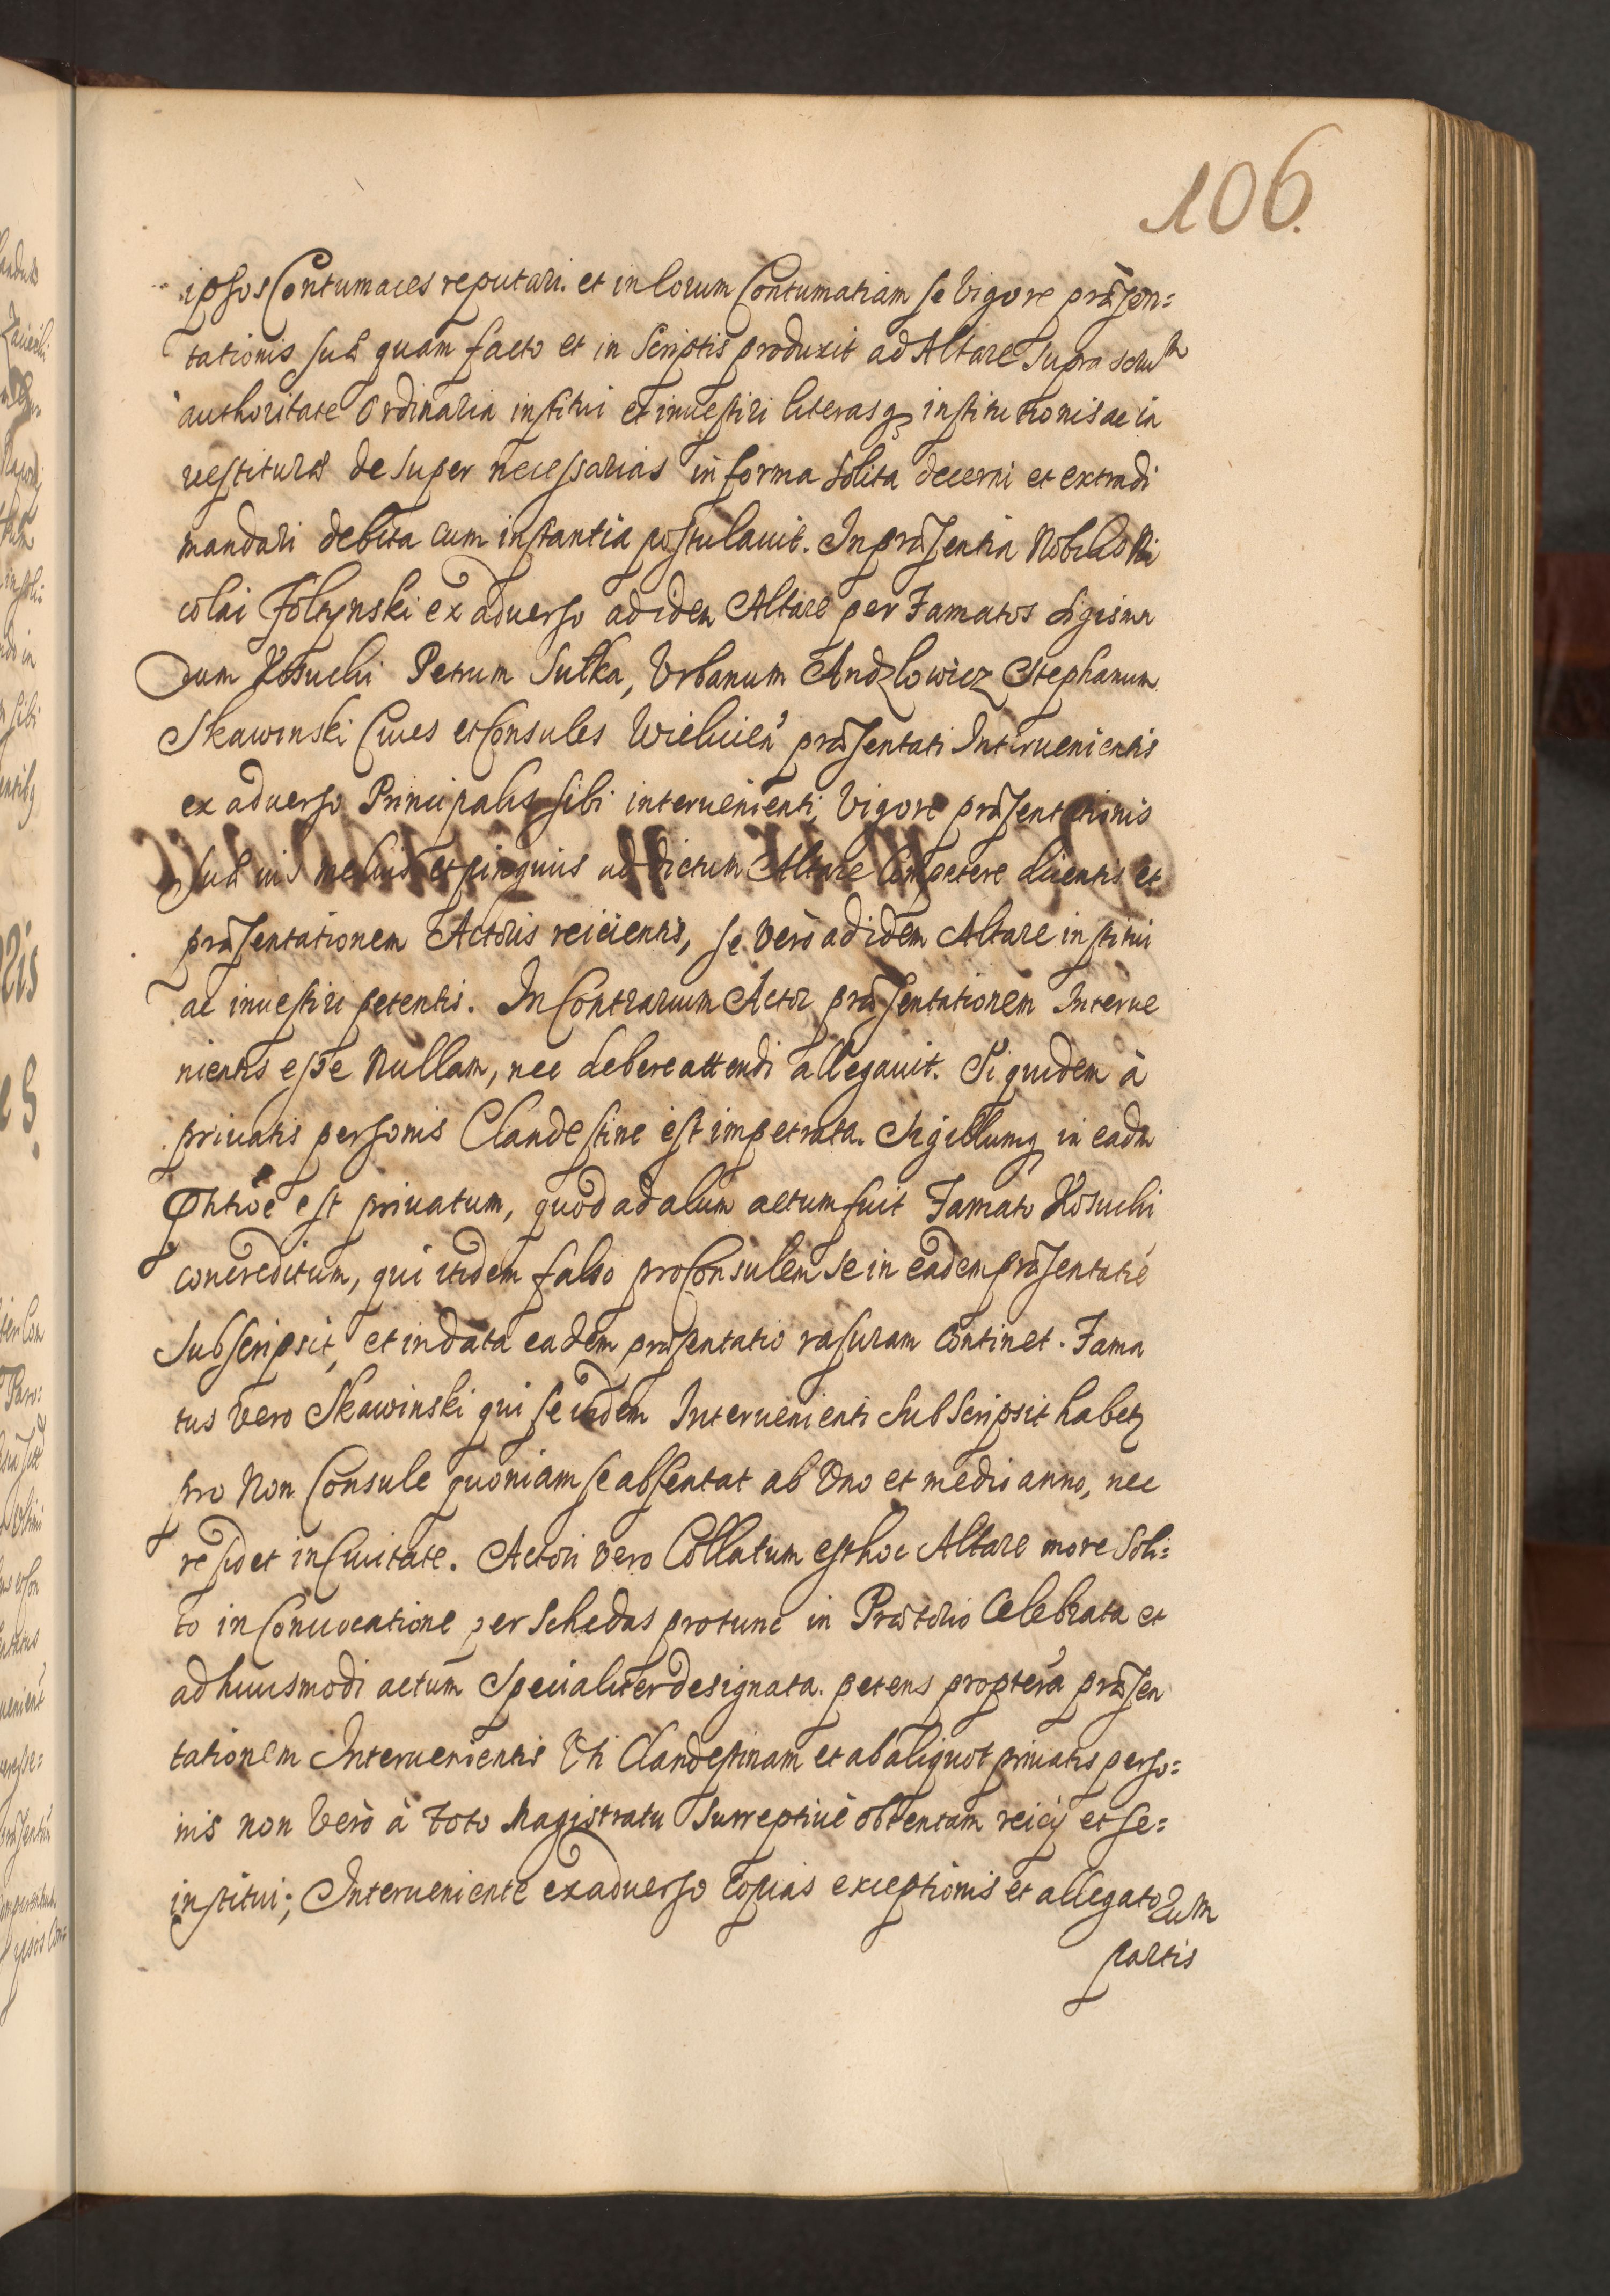 106.
ipsos Contumaces reputari. et in eorum Contumatiam se vigore præsen=
tationis suæ quam facto et in Scriptis produxit ad Altare supra scrip
authoritate Ordinaria institui et inuestiri literasq; institutionis ac in
uestituræ de super necessarias in forma solita decerni et extradi
mandari debita cum instantia postulauit. In præsentia Nobilis Ni
colai Folzynski ex aduerso ad idem Altare per Famatos Sigismu
dum Kosuchi Petrum Sułka, Vrbanum Andzlowicz Stephanum
Skawinski Ciues et Consules Wielicień præsentati Interuenientis
ex aduerso Principalis sibi interuenienti, vigore præsentationis
suæ ius melius et pinguius ad dictum Altare Competere dicentis et
præsentationem Actoris reiicientis, se verò ad idem Altare institui
ac inuestiri petentis. In Contrarium Actor præsentationem Interue
nientis esse Nullam, nec debere attendi allegauit. Siquidem à
priuatis personis Clandestine est impetrata. Sigillumq; in eadm
est priuatum, quod ad alium actum fuit Famato Kosuchi
concreditum, qui itidem falso proConsulem se in eadem præsentatiē
Subscripsit, et in data eadem præsentatio rasuram continet. Fama
tus vero Skawinski qui se itidem Interuenienti Subscripsit habet
pro Non Consule quoniam se absentat ab Vno et medio anno, nec
residet in Ciuitate. Actori vero Collatum est hoc Altare more Soli=
to in Conuocatione per Schedas protunc in Prætorio Celebrata et
ad huiusmodi actum Specialiter designata. petens proptereà præsen
tationem Interuenientis Vti Clandestinam et ab aliquot priuatis perso=
nis non verò à toto Magistratu Surreptiuè obtentam reicij et se=
institui; Interueniente ex aduerso Copias exceptionis et allegatorum
partis